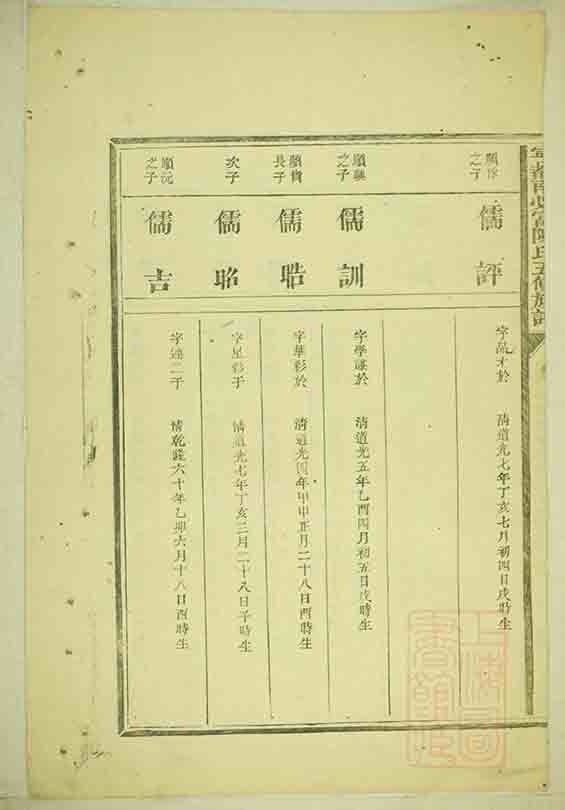 順
之子
儒評
字 於
清道光七年丁亥七月初四日戌時生
順
之子
儒訓
字學 於
清道光五年乙酉四月初五日戌時生
順
長子
儒晧
字華彩於
清道光四年甲申正月二十八日酉時生
次子
儒昭
字星彩于
清道光七年丁亥三月二十八日子時生
順沅
之子
儒吉
字 二于
清乾隆六十年乙卯六月十八日酉時生
上海圖書館藏